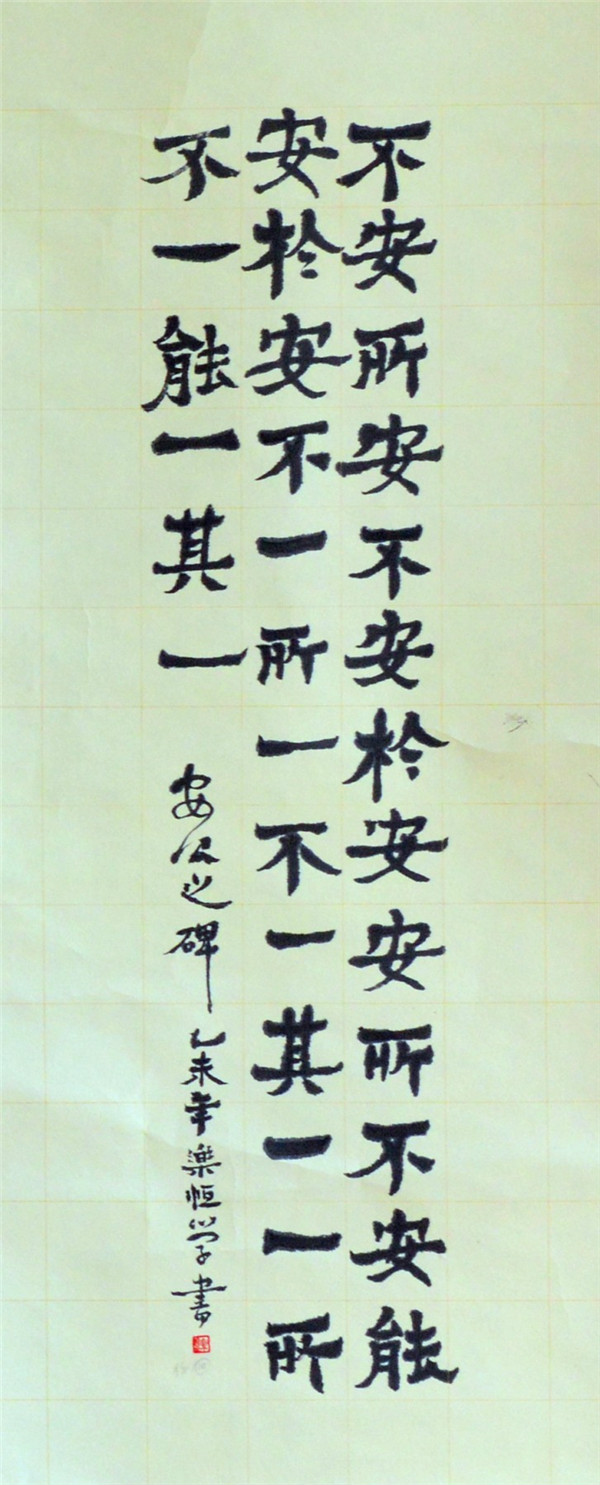 不安所安不安於安安所不安能
安於安不一所一不一其一一所
不一能一其一
安以之碑
乙未年樂恒學子書